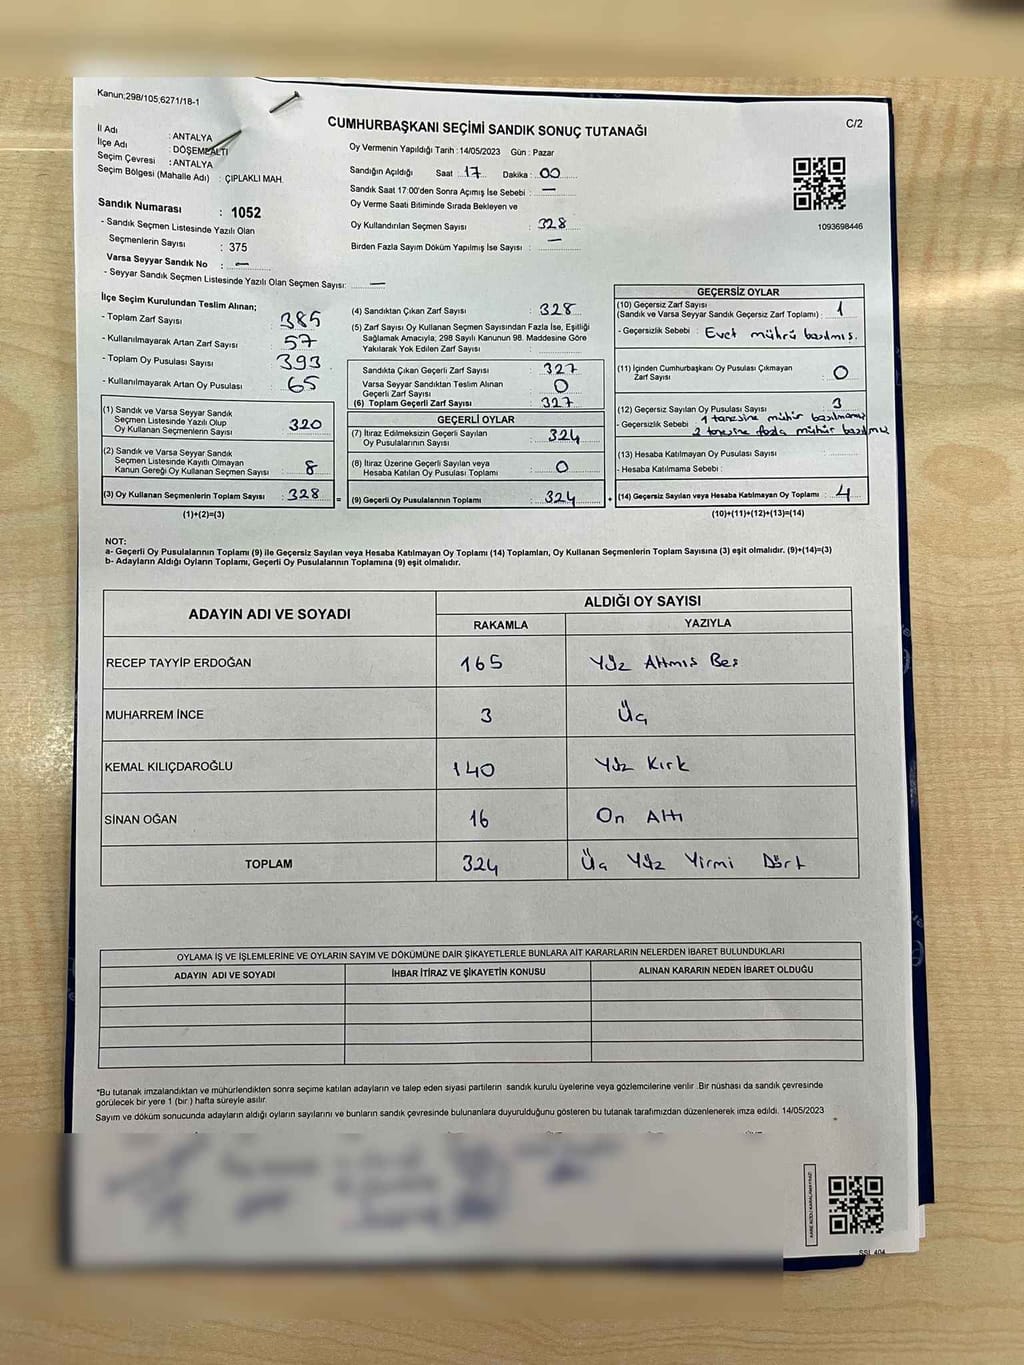 Kanun:298/105,6271/18-1
CUMHURBAŞKANI SEÇİMİ SANDIK SONUÇ TUTANAĞI
C/2
İl Adı : ANTALYA
İlçe Adı : DÖŞEMEALTI
Seçim Çevresi : ANTALYA
Seçim Bölgesi (Mahalle Adı) : ÇIPLAKLI MAH.
Sandık Numarası : 1052
- Sandık Seçmen Listesinde Yazılı Olan
Seçmenlerin Sayısı : 375
Varsa Seyyar Sandık No : —
- Seyyar Sandık Seçmen Listesinde Yazılı Olan Seçmen Sayısı: —
Oy Vermenin Yapıldığı Tarih : 14/05/2023 Gün : Pazar
Sandığın Açıldığı Saat : 17 Dakika : 00
Sandık Saat 17:00'den Sonra Açımış İse Sebebi : —
Oy Verme Saati Bitiminde Sırada Bekleyen ve
Oy Kullandırılan Seçmen Sayısı : 328
Birden Fazla Sayım Döküm Yapılmış İse Sayısı : —
1093698446
İlçe Seçim Kurulundan Teslim Alınan;
- Toplam Zarf Sayısı 385
- Kullanılmayarak Artan Zarf Sayısı 57
- Toplam Oy Pusulası Sayısı 393
- Kullanılmayarak Artan Oy Pusulası 65
(1) Sandık ve Varsa Seyyar Sandık
Seçmen Listesinde Yazılı Olup
Oy Kullanan Seçmenlerin Sayısı 320
(2) Sandık ve Varsa Seyyar Sandık
Seçmen Listesinde Kayıtlı Olmayan
Kanun Gereği Oy Kullanan Seçmen Sayısı : 8
(3) Oy Kullanan Seçmenlerin Toplam Sayısı : 328 =
(1)+(2)=(3)
(4) Sandıktan Çıkan Zarf Sayısı : 328
(5) Zarf Sayısı Oy Kullanan Seçmen Sayısından Fazla İse, Eşitliği
Sağlamak Amacıyla; 298 Sayılı Kanunun 98. Maddesine Göre
Yakılarak Yok Edilen Zarf Sayısı :
Sandıkta Çıkan Geçerli Zarf Sayısı : 327
Varsa Seyyar Sandıktan Teslim Alınan
Geçerli Zarf Sayısı : 0
(6) Toplam Geçerli Zarf Sayısı : 327
GEÇERLİ OYLAR
(7) İtiraz Edilmeksizin Geçerli Sayılan
Oy Pusulalarının Sayısı : 324
(8) İtiraz Üzerine Geçerli Sayılan veya
Hesaba Katılan Oy Pusulası Toplamı : 0
(9) Geçerli Oy Pusulalarının Toplamı : 324 +
GEÇERSİZ OYLAR
(10) Geçersiz Zarf Sayısı
(Sandık ve Varsa Seyyar Sandık Geçersiz Zarf Toplamı) : 1
- Geçersizlik Sebebi : Evet mührü basılmış.
(11) İçinden Cumhurbaşkanı Oy Pusulası Çıkmayan
Zarf Sayısı : 0
(12) Geçersiz Sayılan Oy Pusulası Sayısı : 3
- Geçersizlik Sebebi 1 tanesine mühür basılmamış
2 tanesine fazla mühür basılmış
(13) Hesaba Katılmayan Oy Pusulası Sayısı :
- Hesaba Katılmama Sebebi :
(14) Geçersiz Sayılan veya Hesaba Katılmayan Oy Toplamı : 4
(10)+(11)+(12)+(13)=(14)
NOT:
a- Geçerli Oy Pusulalarının Toplamı (9) ile Geçersiz Sayılan veya Hesaba Katılmayan Oy Toplamı (14) Toplamları, Oy Kullanan Seçmenlerin Toplam Sayısına (3) eşit olmalıdır. (9)+(14)=(3)
b- Adayların Aldığı Oyların Toplamı, Geçerli Oy Pusulalarının Toplamına (9) eşit olmalıdır.
ADAYIN ADI VE SOYADI
ALDIĞI OY SAYISI
RAKAMLA YAZIYLA
RECEP TAYYİP ERDOĞAN 165 Yüz Altmış Beş
MUHARREM İNCE 3 Üç
KEMAL KILIÇDAROĞLU 140 Yüz Kırk
SİNAN OĞAN 16 On Altı
TOPLAM 324 Üç Yüz Yirmi Dört
OYLAMA İŞ VE İŞLEMLERİNE VE OYLARIN SAYIM VE DÖKÜMÜNE DAİR ŞİKAYETLERLE BUNLARA AİT KARARLARIN NELERDEN İBARET BULUNDUKLARI
ADAYIN ADI VE SOYADI İHBAR İTİRAZ VE ŞİKAYETİN KONUSU ALINAN KARARIN NEDEN İBARET OLDUĞU
*Bu tutanak imzalandıktan ve mühürlendikten sonra seçime katılan adayların ve talep eden siyasi partilerin sandık kurulu üyelerine veya gözlemcilerine verilir .Bir nüshası da sandık çevresinde
görülecek bir yere 1 (bir ) hafta süreyle asılır.
Sayım ve döküm sonucunda adayların aldığı oyların sayılarını ve bunların sandık çevresinde bulunanlara duyurulduğunu gösteren bu tutanak tarafımızdan düzenlenerek imza edildi. 14/05/2023
SSL 404